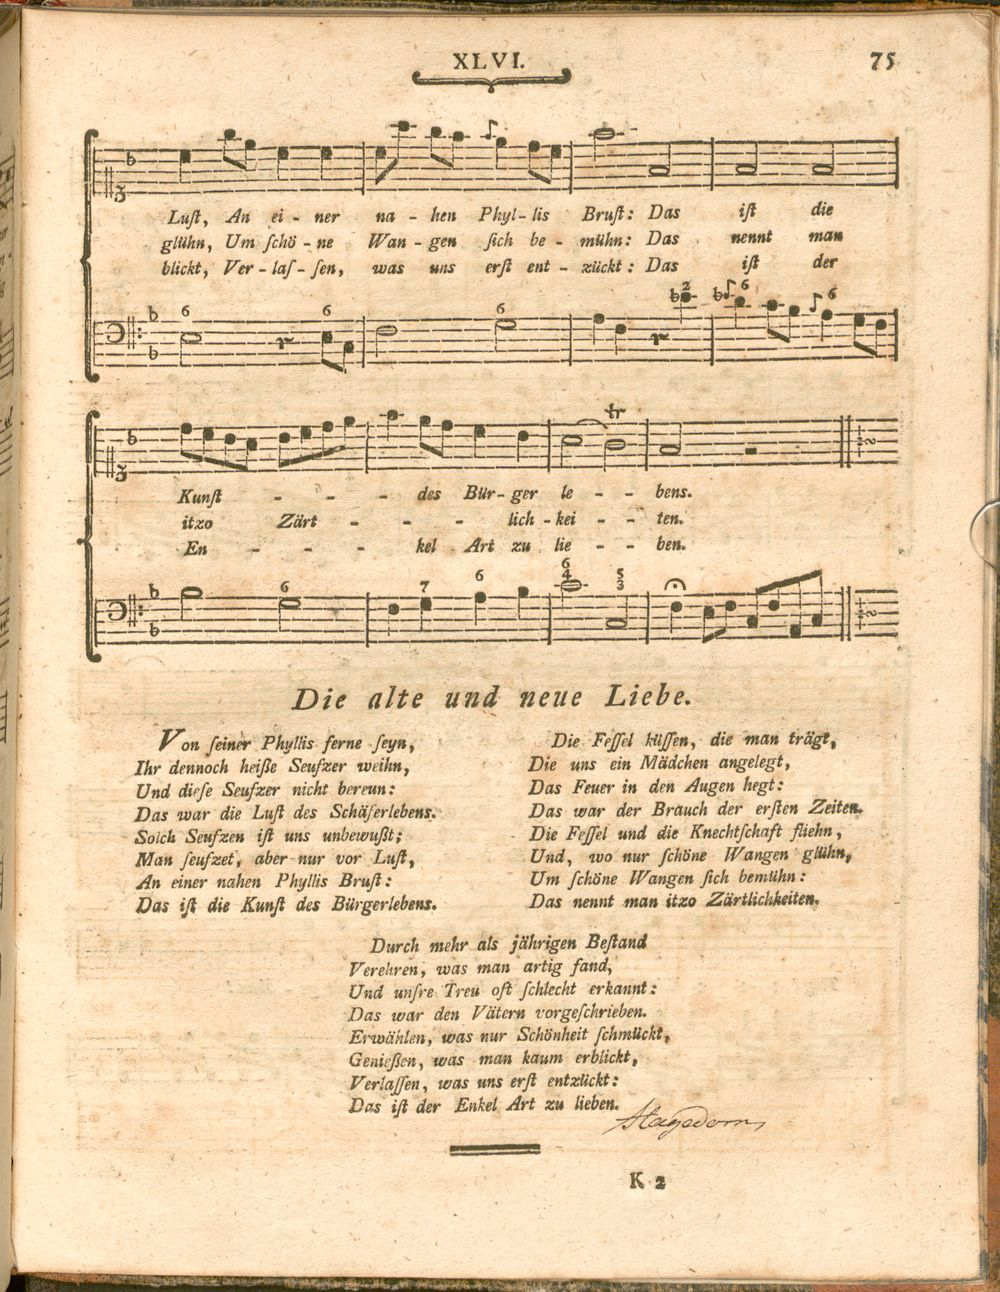 XLVI.
75
Luſt, An ei - ner na - hen Phyl - lis Bruſt: Das iſt die
glühn, Um ſchö - ne Wan - gen ſich be - mühn: Das nennt man
blickt, Ver - laſ - ſen, was uns erſt ent - zückt: Das iſt der
6 6 6 2 6 6
tr
Kunſt - - - des Bür - ger le - - bens.
itzo Zärt - - - lich - kei - - ten.
En - - - kel Art zu lie - - ben.
6 7 6 6 4 5 3
Die alte und neue Liebe.
Von ſeiner Phyllis ferne ſeyn,
Ihr dennoch heiße Seufzer weihn,
Und dieſe Seufzer nicht bereun:
Das war die Luſt des Schäferlebens.
Solch Seufzen iſt uns unbewußt;
Man ſeufzet, aber nur vor Luſt,
An einer nahen Phyllis Bruſt:
Das iſt die Kunſt des Bürgerlebens.
Die Feſſel küſſen, die man trägt,
Die uns ein Mädchen angelegt,
Das Feuer in den Augen hegt:
Das war der Brauch der erſten Zeiten.
Die Feſſel und die Knechtſchaft fliehn,
Und, wo nur ſchöne Wangen glühn,
Um ſchöne Wangen ſich bemühn:
Das nennt man itzo Zärtlichkeiten.
Durch mehr als jährigen Beſtand
Verehren, was man artig fand,
Und unſre Treu oft ſchlecht erkannt:
Das war den Vätern vorgeſchrieben.
Erwählen, was nur Schönheit ſchmückt,
Genießen, was man kaum erblickt,
Verlaſſen, was uns erſt entzückt:
Das iſt der Enkel Art zu lieben.
Hagedorn
K 2